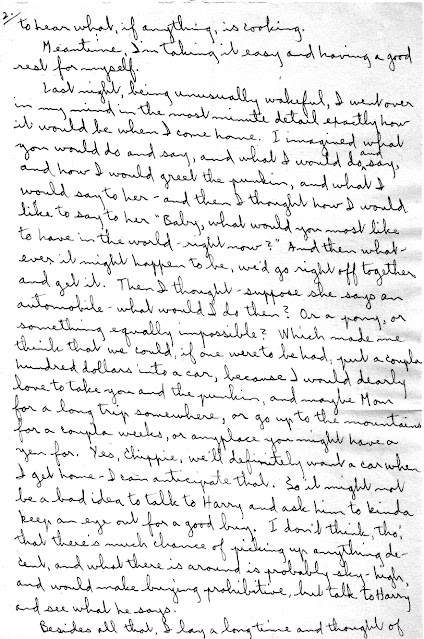 2.
to hear what, if anything, is cooking.
Meantime, I'm taking it easy and having a good
rest for myself.
Last night, being unusually wakeful, I went over
in my mind in the most minute detail exactly how
it would be when I come home. I imagined what
you would do and say, and what I would do and say,
and how I would greet the punkin, and what I
would say to her - and then I thought how I would
like to say to her "Baby, what would you most like
to have in the world - right now?" And then what-
ever it might happen to be, we'd go right off together
and get it. Then I thought - suppose she says an
automobile - what would I do then? Or a pony, or
something equally impossible? Which made me
think that we could, if one were to be had, put a coupla
hundred dollars into a car, because I would dearly
love to take you and the punkin, and maybe Mom
for a long trip somewhere, or go up to the mountains
for a coupla weeks, or anyplace you might have a
yen for. Yes, Chippie, we'll definitely want a car when
I get home - I can anticipate that. So it might not
be a bad idea to talk to Harry and ask him to kinda
keep an eye out for a good buy. I don't think, tho,
that there's much chance of picking up anything de-
cent, and what there is around is probably sky-high,
and would make buying prohibitive, but talk to Harry
and see what he says.
Besides all that, I lay a long time and thought of